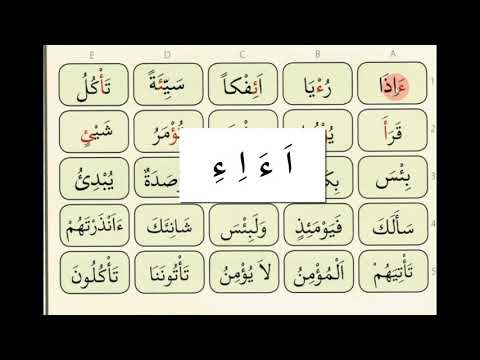 E D C B A
ءَاِذَا رُءْيَا اَئِفْكاً سَيِّئَةً تَأْكُلُ 1
قَرَأَ شَيْئٍ 2
اَ ءَ اِ ءِ
بِئْسَ يُبْدِئُ
سَأَلَكَ فَيَوْمَئِذٍ وَلَبِئْسَ شَانِئَكَ ءَاَنْذَرْتَهُمْ 4
تَأْتِيَهُمْ اَلْمُؤْمِنُ لاَ يُؤْمِنُ تَأْتُونَنَا تَأْكُلُونَ 5